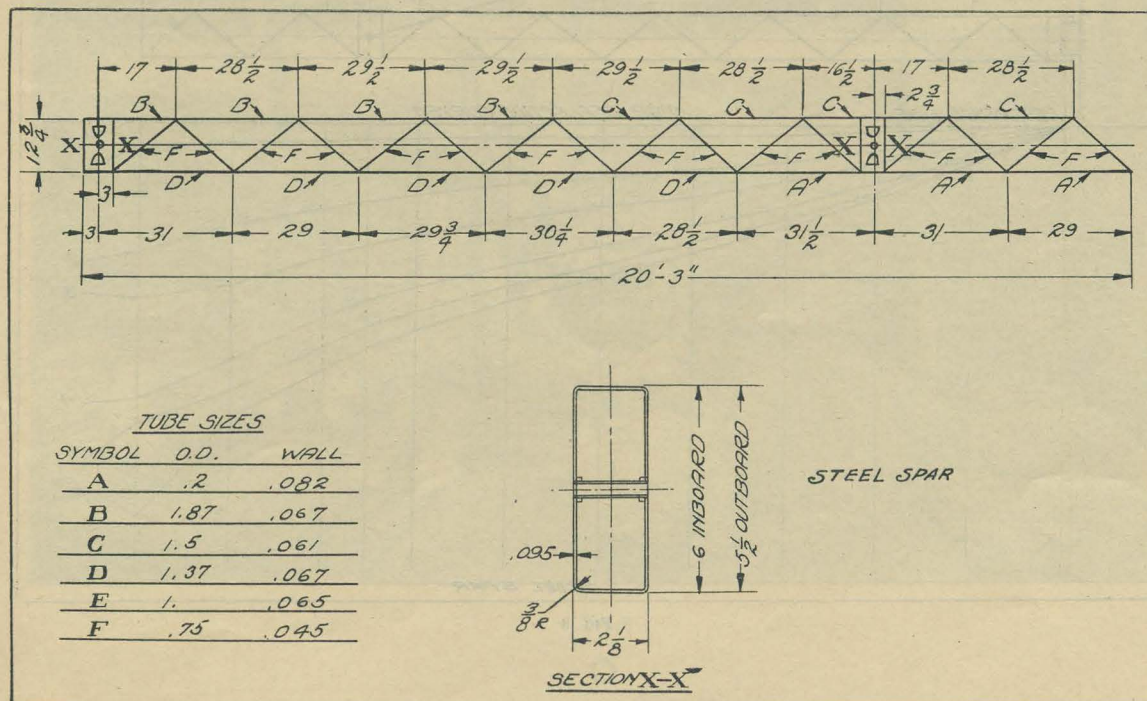 17 28 1/2 29 1/2 29 1/2 29 1/2 28 1/2 16 1/2 17 28 1/2
2 3/4
B B B B C C C C
12 3/4
X X F F F F F F X X F F
D D D D D A A A
3
3 31 29 29 3/4 30 1/4 28 1/2 31 1/2 31 29
20'-3"
TUBE SIZES
SYMBOL O.D. WALL
A .2 .082
B 1.87 .067
C 1.5 .061
D 1.37 .067
E 1. .065
F .75 .045
6 INBOARD
5 1/2 OUTBOARD
STEEL SPAR
.095
3/8 R
2 1/8
SECTION X-X